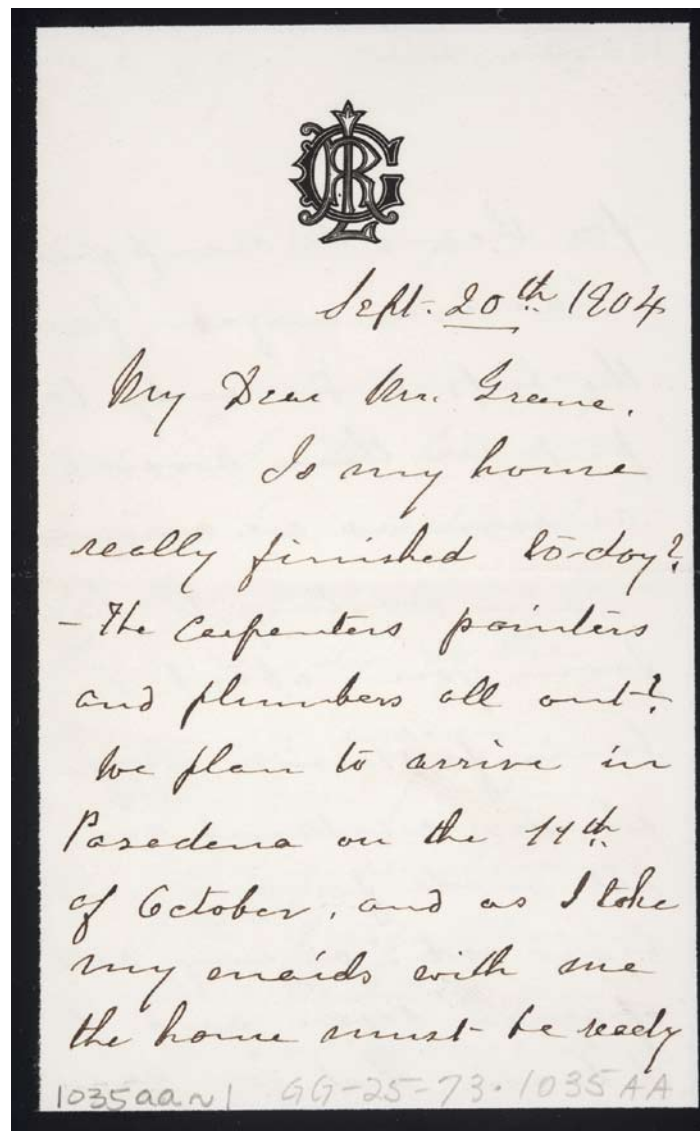 Sept. 20th 1904
My Dear Mr. Greene,
Is my home
really finished to-day?
- The Carpenters painters
and plumbers all out?
We plan to arrive in
Pasadena on the
of October, and as I take
my maids with me
the home must be ready
1035aa~1 GG-25-73.1035AA